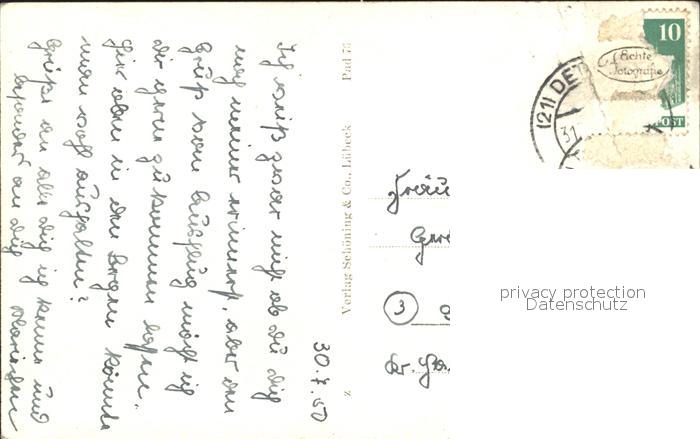 30.7.50
Ich weiß zwar nicht ob du dich
noch meiner erinnerst, aber den
Gruß vom Ausflug möcht ich
dir gern zukommen lassen.
Hier oben in den Bergen könnte
man wohl aushalten?
Grüße an alle die ich kenne und
besonders an dich
Verlag Schöning & Co., Lübeck
Z
Echte
Fotografie
10
POST
(21) DET
31
Fräu
3
Kr.
privacy protection
Datenschutz